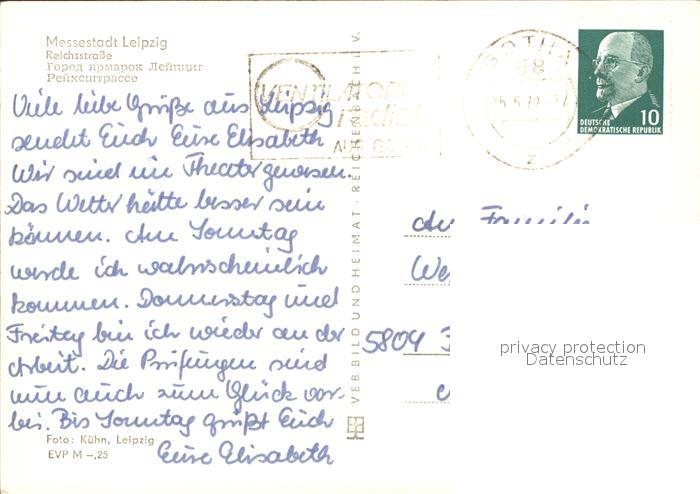 Messestadt Leipzig
Reichsstraße
Город ярмарок Лейпциг
Рейхсштрассе
Viele liebe Grüße aus Leipzig
sendet Euch Eure Elisabeth
Wir sind im Theater gewesen.
Das Wetter hätte besser sein
können. Am Sonntag
werde ich wahrscheinlich
kommen. Donnerstag und
Freitag bin ich wieder an der
Arbeit. Die Prüfungen sind
nun auch zum Glück vor-
bei. Bis Sonntag grüßt Euch
Eure Elisabeth
Foto: Kühn, Leipzig
EVP M –,25
VEB BILD UND HEIMAT · REICHENBACH I. V.
VENTILATOREN
AUS GOTHA
GOTHA
58
z
DEUTSCHE
DEMOKRATISCHE REPUBLIK
10
An Familie
We
5804 F
privacy protection
Datenschutz